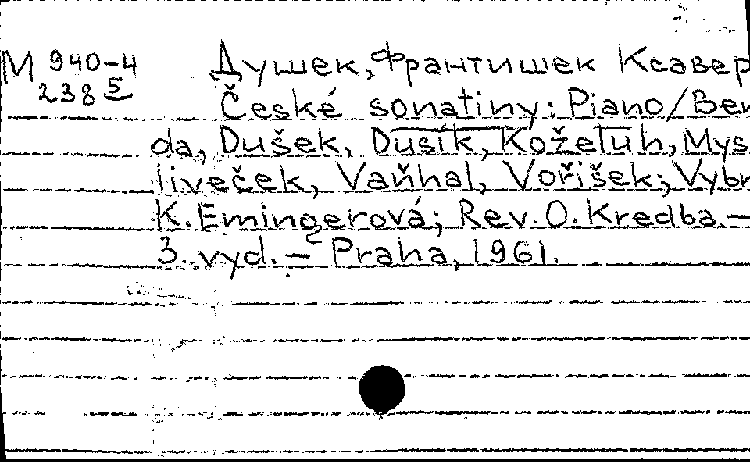 М 940-4 Душек, Франтишек Ксавер
238 5 České sonatiny: Piano/Ben
da, Dušek, Dusík, Koželuh, Mys
liveček, Vaňhal, Voříšek; Vybr
K. Emingerová; Rev. O. Kredba.—
3. vyd. — Praha, 1961.